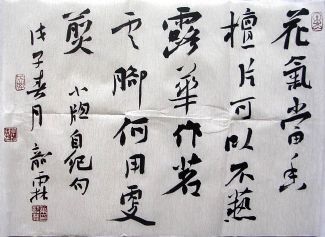 花氣當香
檀片可以不爇
露華作茗
云腳何用更
煎
小牕自紀句
戊子春月